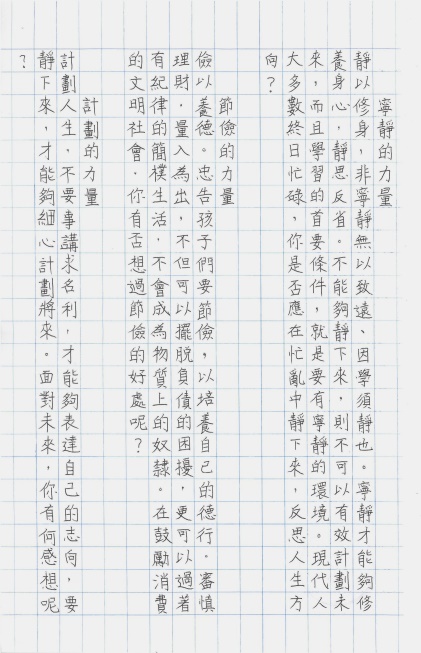 寧靜的力量
靜以修身，非寧靜無以致遠、因學須靜也。寧靜才能夠修
養身心，靜思反省。不能夠靜下來，則不可以有效計劃未
來，而且學習的首要條件，就是要有寧靜的環境。現代人
大多數終日忙碌，你是否應在忙亂中靜下來，反思人生方
向？
節儉的力量
儉以養德。忠告孩子們要節儉，以培養自己的德行。審慎
理財．量入為出，不但可以擺脫負債的困擾，更可以過著
有紀律的簡樸生活，不會成為物質上的奴隸。在鼓勵消費
的文明社會．你有否想過節儉的好處呢？
計劃的力量
計劃人生，不要事講求名利，才能夠表達自己的志向，要
靜下來，才能夠細心計劃將來。面對未來，你有何感想呢
？